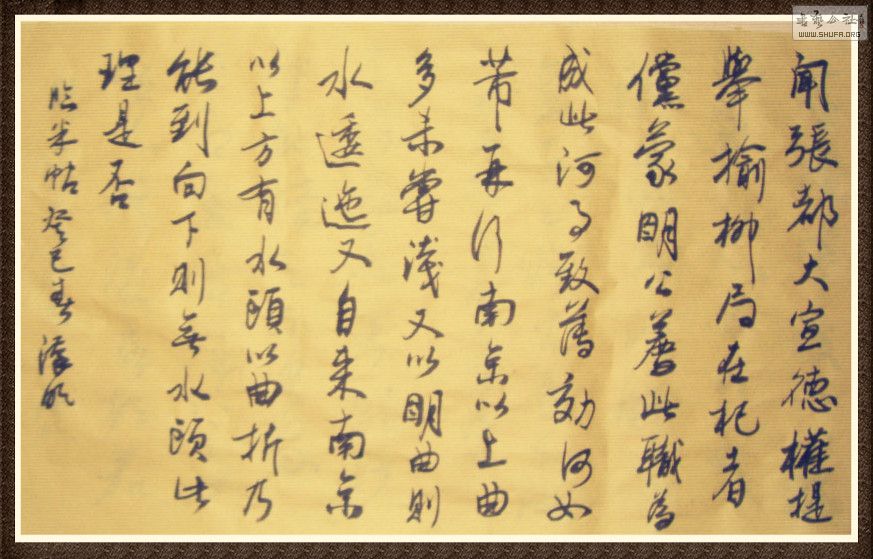 闻張都大宣德權提
舉榆柳局在杞者
儻蒙明公薦此職為
成此河事致薦効何如
芾再行南京以上曲
多未嘗淺又以明曲則
水逶迤又自来南京
以上方有水頭以曲折乃
能到向下則無水頭此
理是否
臨米帖癸巳春
书艺公社
WWW.SHUFA.ORG